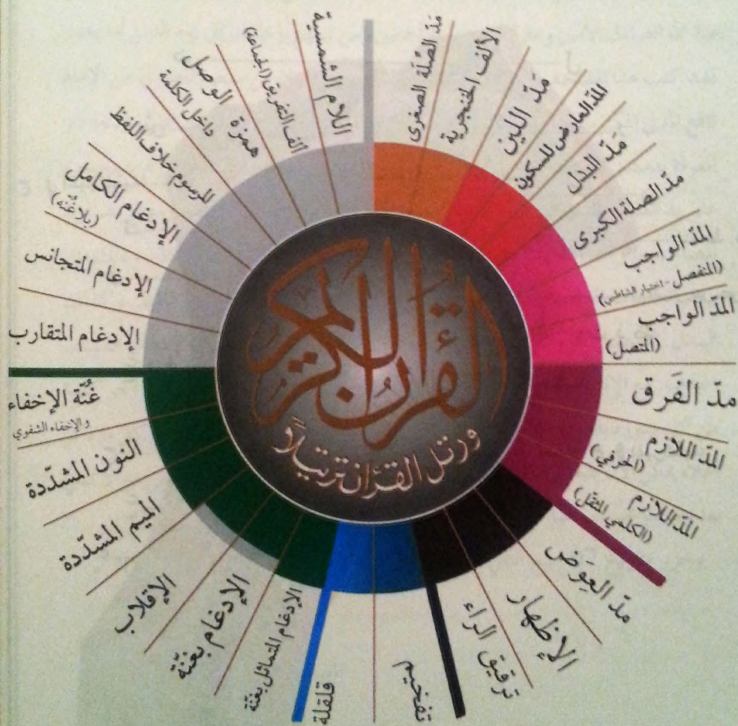 القرآن الكريم
ورتل القرآن ترتيلاً
مَدّ الصِّلَة الصغرى
الألف الخنجرية
مَدّ اللين
المدّ العارض للسكون
مدّ البدَل
مدّ الصلة الكبرى
المدّ الواجب
(المنفصل - اختيار الشاطبي)
المدّ الواجب
(المتصل)
مدّ الفَرق
المدّ اللازم
(الحرفي)
المدّ اللازم
(الكلمي المثقل)
مدّ العِوَض
الإظهار
ترقيق الراء
تفخيم
قلقلة
الإدغام المتماثل بغنّة
الإدغام بغنّة
الإقلاب
الميم المشدّدة
النون المشدّدة
غُنّة الإخفاء
والإخفاء الشفوي
الإدغام المتقارب
الإدغام المتجانس
الإدغام الكامل
(بلا غُنّه)
المرسوم خلاف اللفظ
همزة الوصل
داخل الكلمة
ألف التفريق (الجماعة)
اللام الشمسية